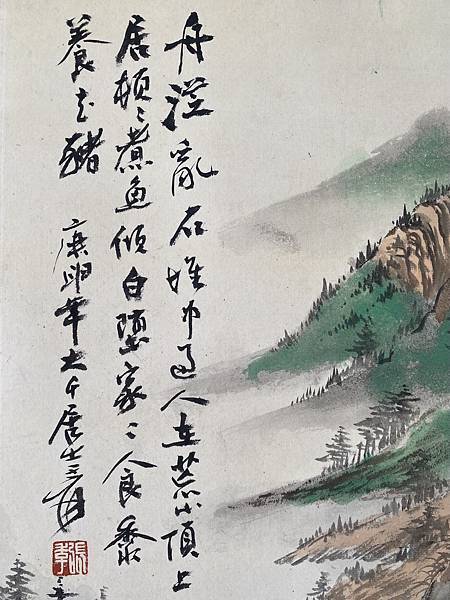 舟從亂石堆中過人在荒山頂上
居頓〻煮魚傾白墮家〻食黍
養豬 卯年大千居士爰